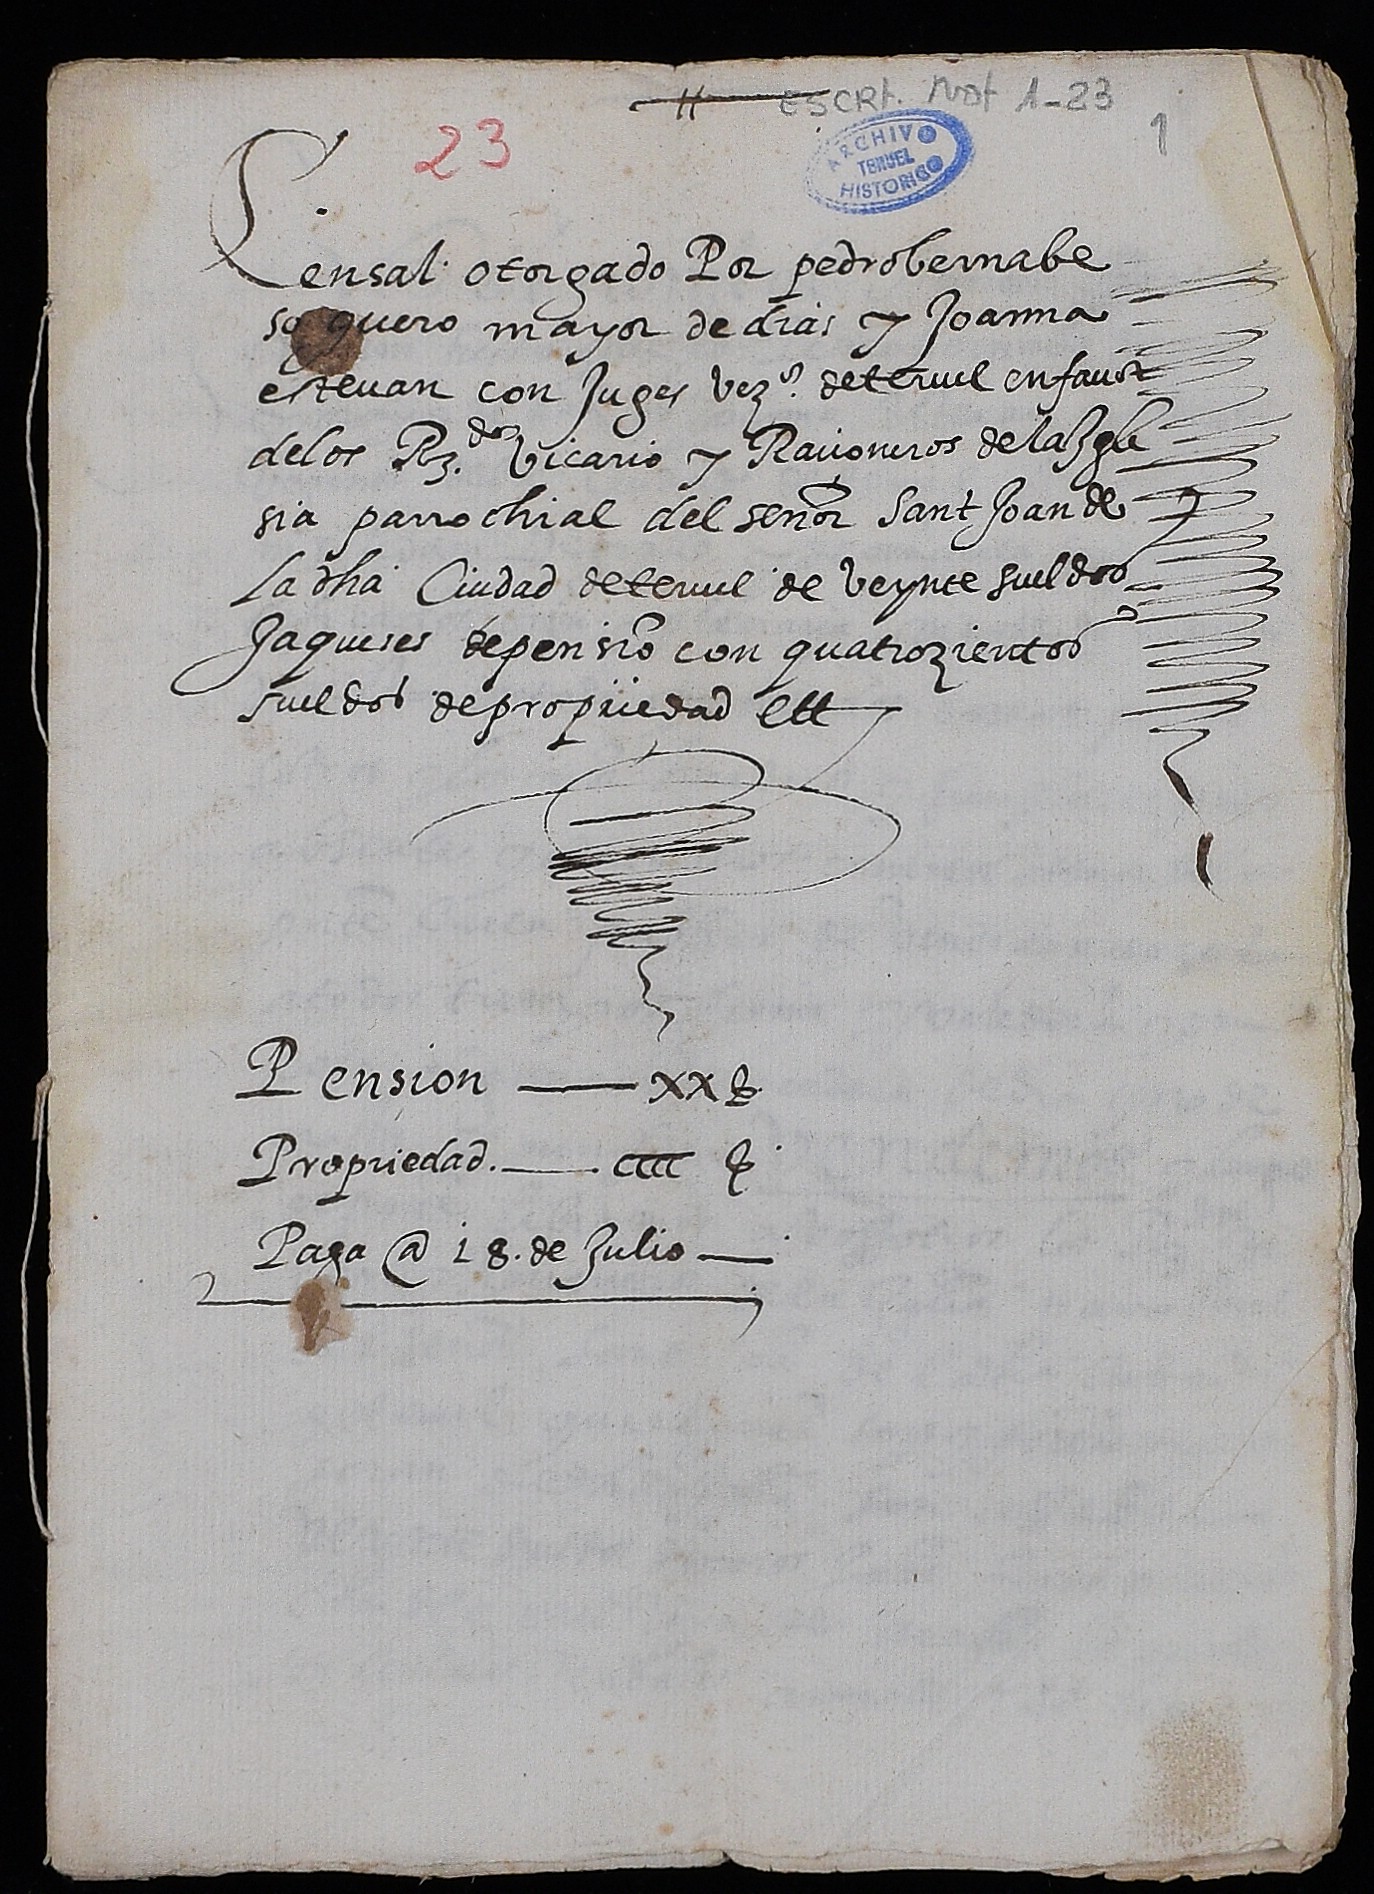 ESCRt. Not 1-23
23
1
ARCHIVO
TERUEL
HISTORICO
Censal otorgado Por pedro bernabe
soguero mayor de dias y Joanna
esteuan conJuges vezos. de teruel en fauor
de los Rdos. Vicario y Racioneros de la Ygle
sia parrochial del señor Sant Joan de
La dha Ciudad de teruel de veynte sueldos
Jaqueses de pensio con quatrozientos
sueldos de propiedad ett
Pension — xx s
Propriedad. — cccc s
Paga @ 18. de Julio —